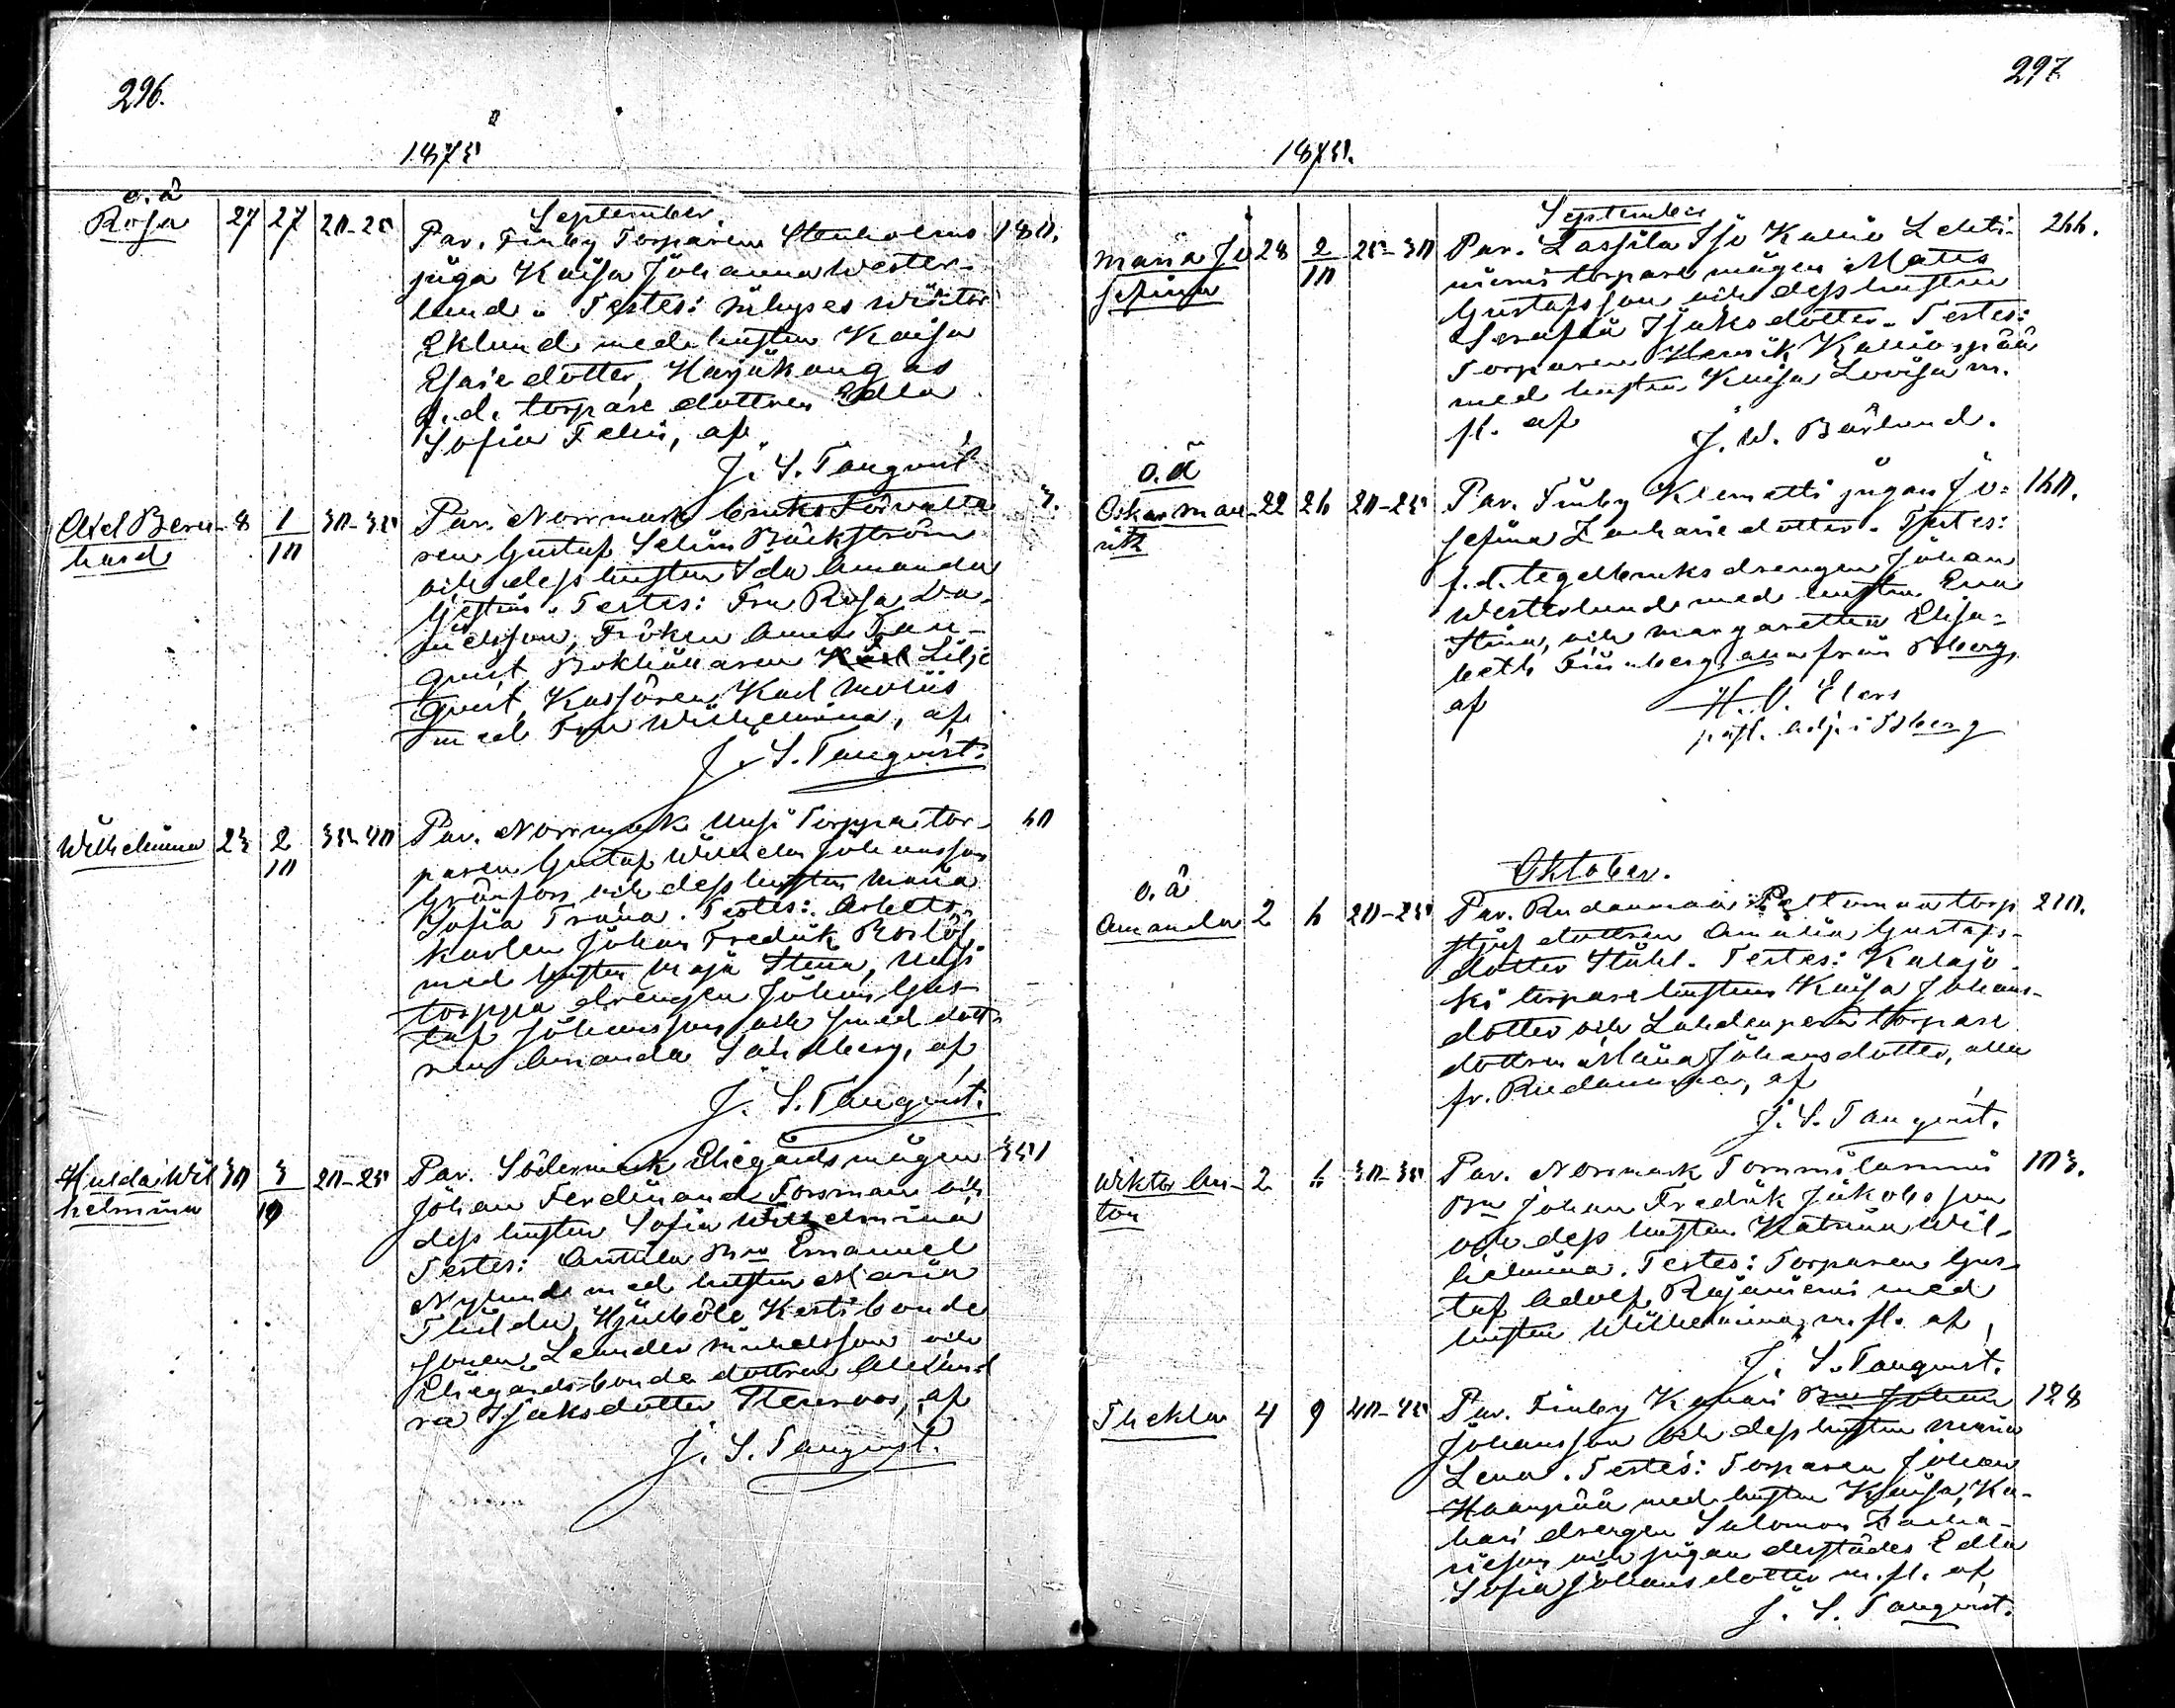 296.
1875
September.
o.ä
Rosa 27 27 20-25 Par. Finby Torparen Stenholms 180.
piga Kaisa Johanna Wester-
lund. Testes: Inhyses Wiktor
Eklund med hustru Kaisa
Esaiedotter, Harjukangas
f.d. torpare dottren Edla
Sofia Felin, af
J. S. Tanqvist
Axel Bern- 8 1/10 30-35 Par. Norrmark bruks Förvalta 3.
hard
ren Gustaf Selim Bäckström
och dess hustru Ida Amanda
Testes: Fru Rosa Da-
nielsson, Fröken Anna Tan-
qvist, Bokhållaren Karl Lilje
qvist, Kassören Karl Moliis
med Fru Wilhelmina, af
J. S. Tanqvist.
Wilhelmina 23 2/10 35-40 Par. Norrmark Uusi Torppa tor- 60
paren Gustaf Wilhelm Johansson
Grönfors och dess hustru Maria
Sofia Frans. Testes: Arbets-
karlen Johan Fredrik Roslöf
med hustru Maja Stina, Uusi
torppa drengen Johan Gus-
taf Johansson och smed dott-
ren Amanda Sandberg, af
J. S. Tanqvist.
Hulda Wil 30 3/10 20-25 Par. Södermark Eliegårds mågen 351
helmina
Johan Ferdinand Forsman och
dess hustru Sofia Wilhelmina
Testes: Anttila Bn Emanuel
Nylund med hustru Maria
Thilda, Hjulböle Kesti bonde
sonen Leander Mickelsson och
Eliegårds bonde dottren Alexand
ra Isaksdotter Stenroos, af
J. S. Tanqvist.
297
1875.
September
Maria Jo 28 2/10 25-30 Par. Lassila Iso Kallio Lehti- 266.
sefina
niemi torpare mågen Matts
Gustafsson och dess hustru
Serafia Isaksdotter. Testes:
Torparen Henrik Kalliospää
med hustru Kaisa Lovisa m.
fl. af
J. W. Bärlund.
o.ä
Oskar Mau- 22 26 20-25 Par. Finby Klemetti pigan Jo- 160.
ritz
sefina Zachariedotter. Testes:
f.d. tegelbruks drengen Johan
Westerlund med hustru Eva
Stina, och Margaretta Elisa-
beth Finnberg, alla från Bberg,
af
past. adj. i Bberg
Oktober.
o.ä
Amanda 2 6 20-25 Par. Rudanmaa Peltomaa torp 210.
stjuf dottren Amalia Gustafs-
dotter Ståhl. Testes: Kalajo-
ki torpare hustrun Kaisa Johans-
dotter och Lahdenperä torpare
dottren Maria Johansdotter, alla
fr. Rudanmaa, af
J. S. Tanqvist.
Wiktor An- 2 6 30-35 Par. Norrmark Tommilanmi 103.
ton
Bn Johan Fredrik Jakobsson
och dess hustru Katrina Wil-
helmina. Testes: Torparen Gus-
taf Adolf Rajaniemi med
hustru Wilhelmina m.fl. af
J. S. Tanqvist.
Thekla 4 9 40-45 Par. Finby Kahari Bn Johan 128
Johansson och dess hustru Maria
Lena. Testes: Torparen Johan
Haanpää med hustru Kaisa, Ka-
hari drengen Salomon Zacha-
riesson och pigan derstädes Edla
Sofia Johansdotter m.fl. af
J. S. Tanqvist.